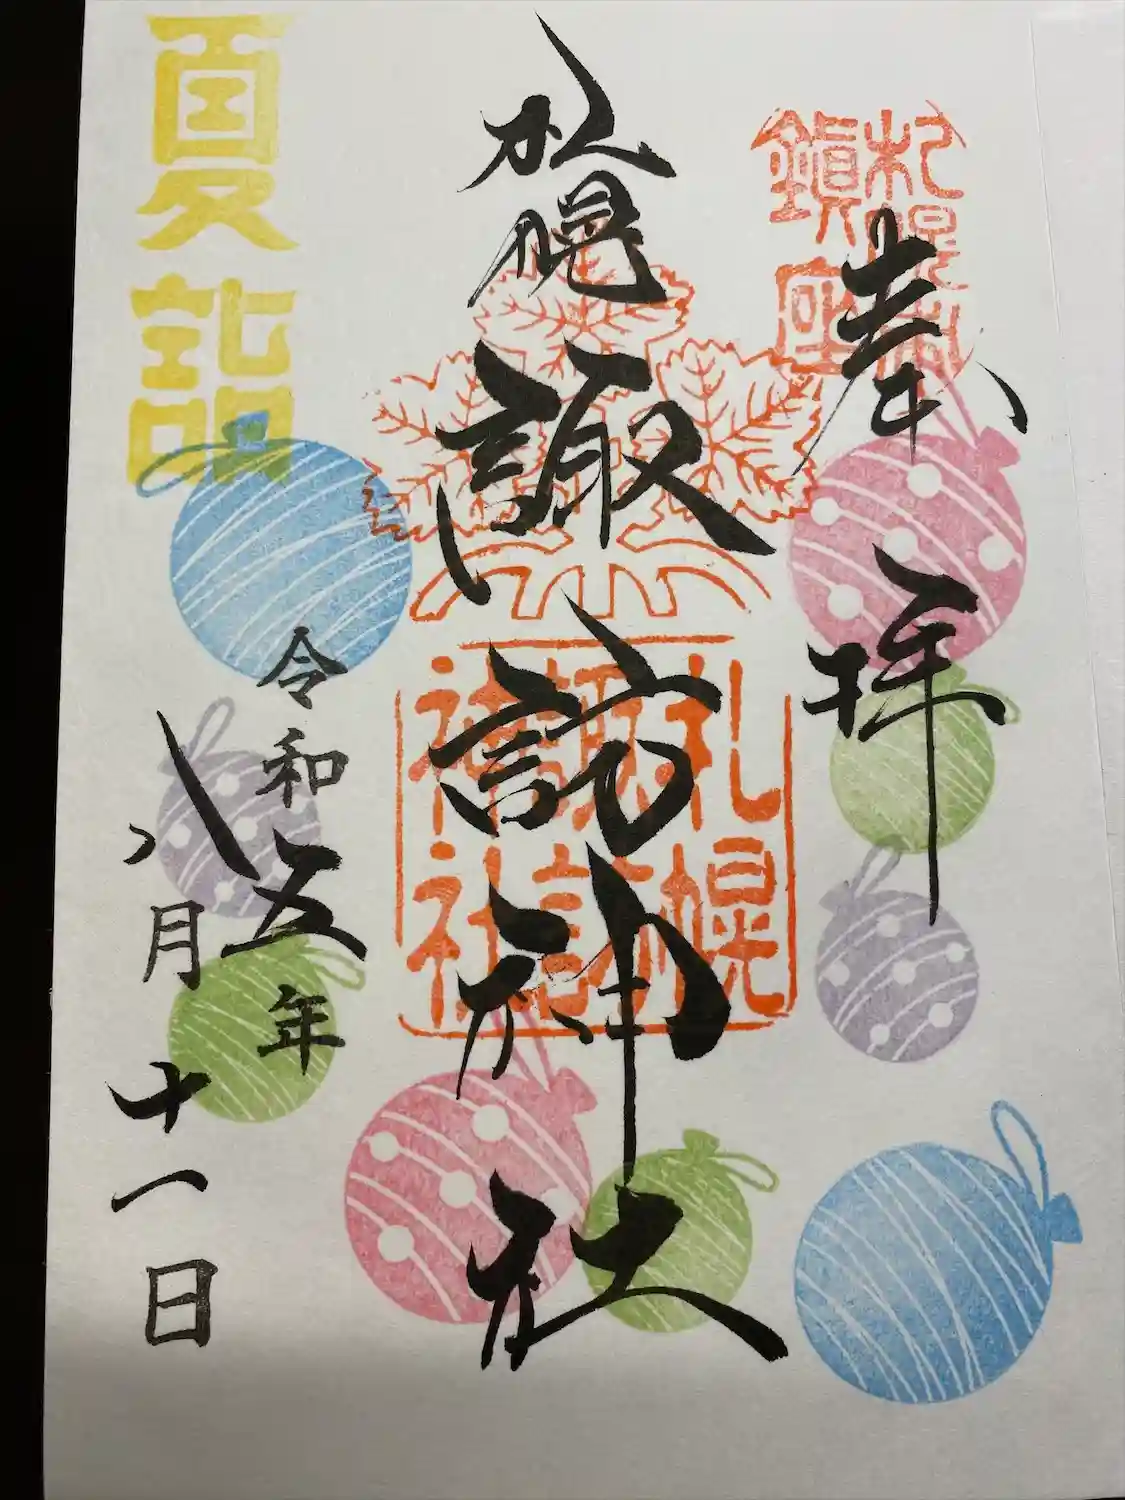 奉拝
札幌鎮座
札幌諏訪神社
札幌諏訪神社
令和五年
八月十一日
夏詣